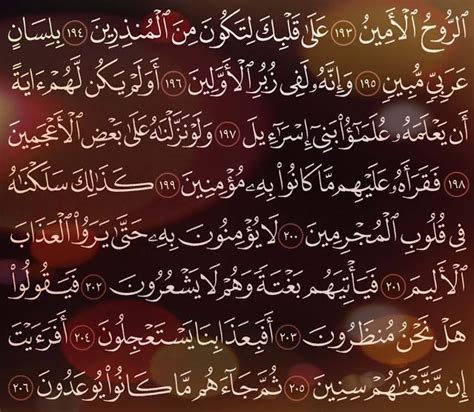 ٱلرُّوحُ ٱلْأَمِينُ ١٩٣ عَلَىٰ قَلْبِكَ لِتَكُونَ مِنَ ٱلْمُنذِرِينَ ١٩٤ بِلِسَانٍ
عَرَبِيٍّ مُّبِينٍ ١٩٥ وَإِنَّهُۥ لَفِى زُبُرِ ٱلْأَوَّلِينَ ١٩٦ أَوَلَمْ يَكُن لَّهُمْ ءَايَةً
أَن يَعْلَمَهُۥ عُلَمَٰٓؤُا۟ بَنِىٓ إِسْرَٰٓءِيلَ ١٩٧ وَلَوْ نَزَّلْنَٰهُ عَلَىٰ بَعْضِ ٱلْأَعْجَمِينَ
١٩٨ فَقَرَأَهُۥ عَلَيْهِم مَّا كَانُوا۟ بِهِۦ مُؤْمِنِينَ ١٩٩ كَذَٰلِكَ سَلَكْنَٰهُ
فِى قُلُوبِ ٱلْمُجْرِمِينَ ٢٠٠ لَا يُؤْمِنُونَ بِهِۦ حَتَّىٰ يَرَوُا۟ ٱلْعَذَابَ
ٱلْأَلِيمَ ٢٠١ فَيَأْتِيَهُم بَغْتَةً وَهُمْ لَا يَشْعُرُونَ ٢٠٢ فَيَقُولُوا۟
هَلْ نَحْنُ مُنظَرُونَ ٢٠٣ أَفَبِعَذَابِنَا يَسْتَعْجِلُونَ ٢٠٤ أَفَرَءَيْتَ
إِن مَّتَّعْنَٰهُمْ سِنِينَ ٢٠٥ ثُمَّ جَآءَهُم مَّا كَانُوا۟ يُوعَدُونَ ٢٠٦